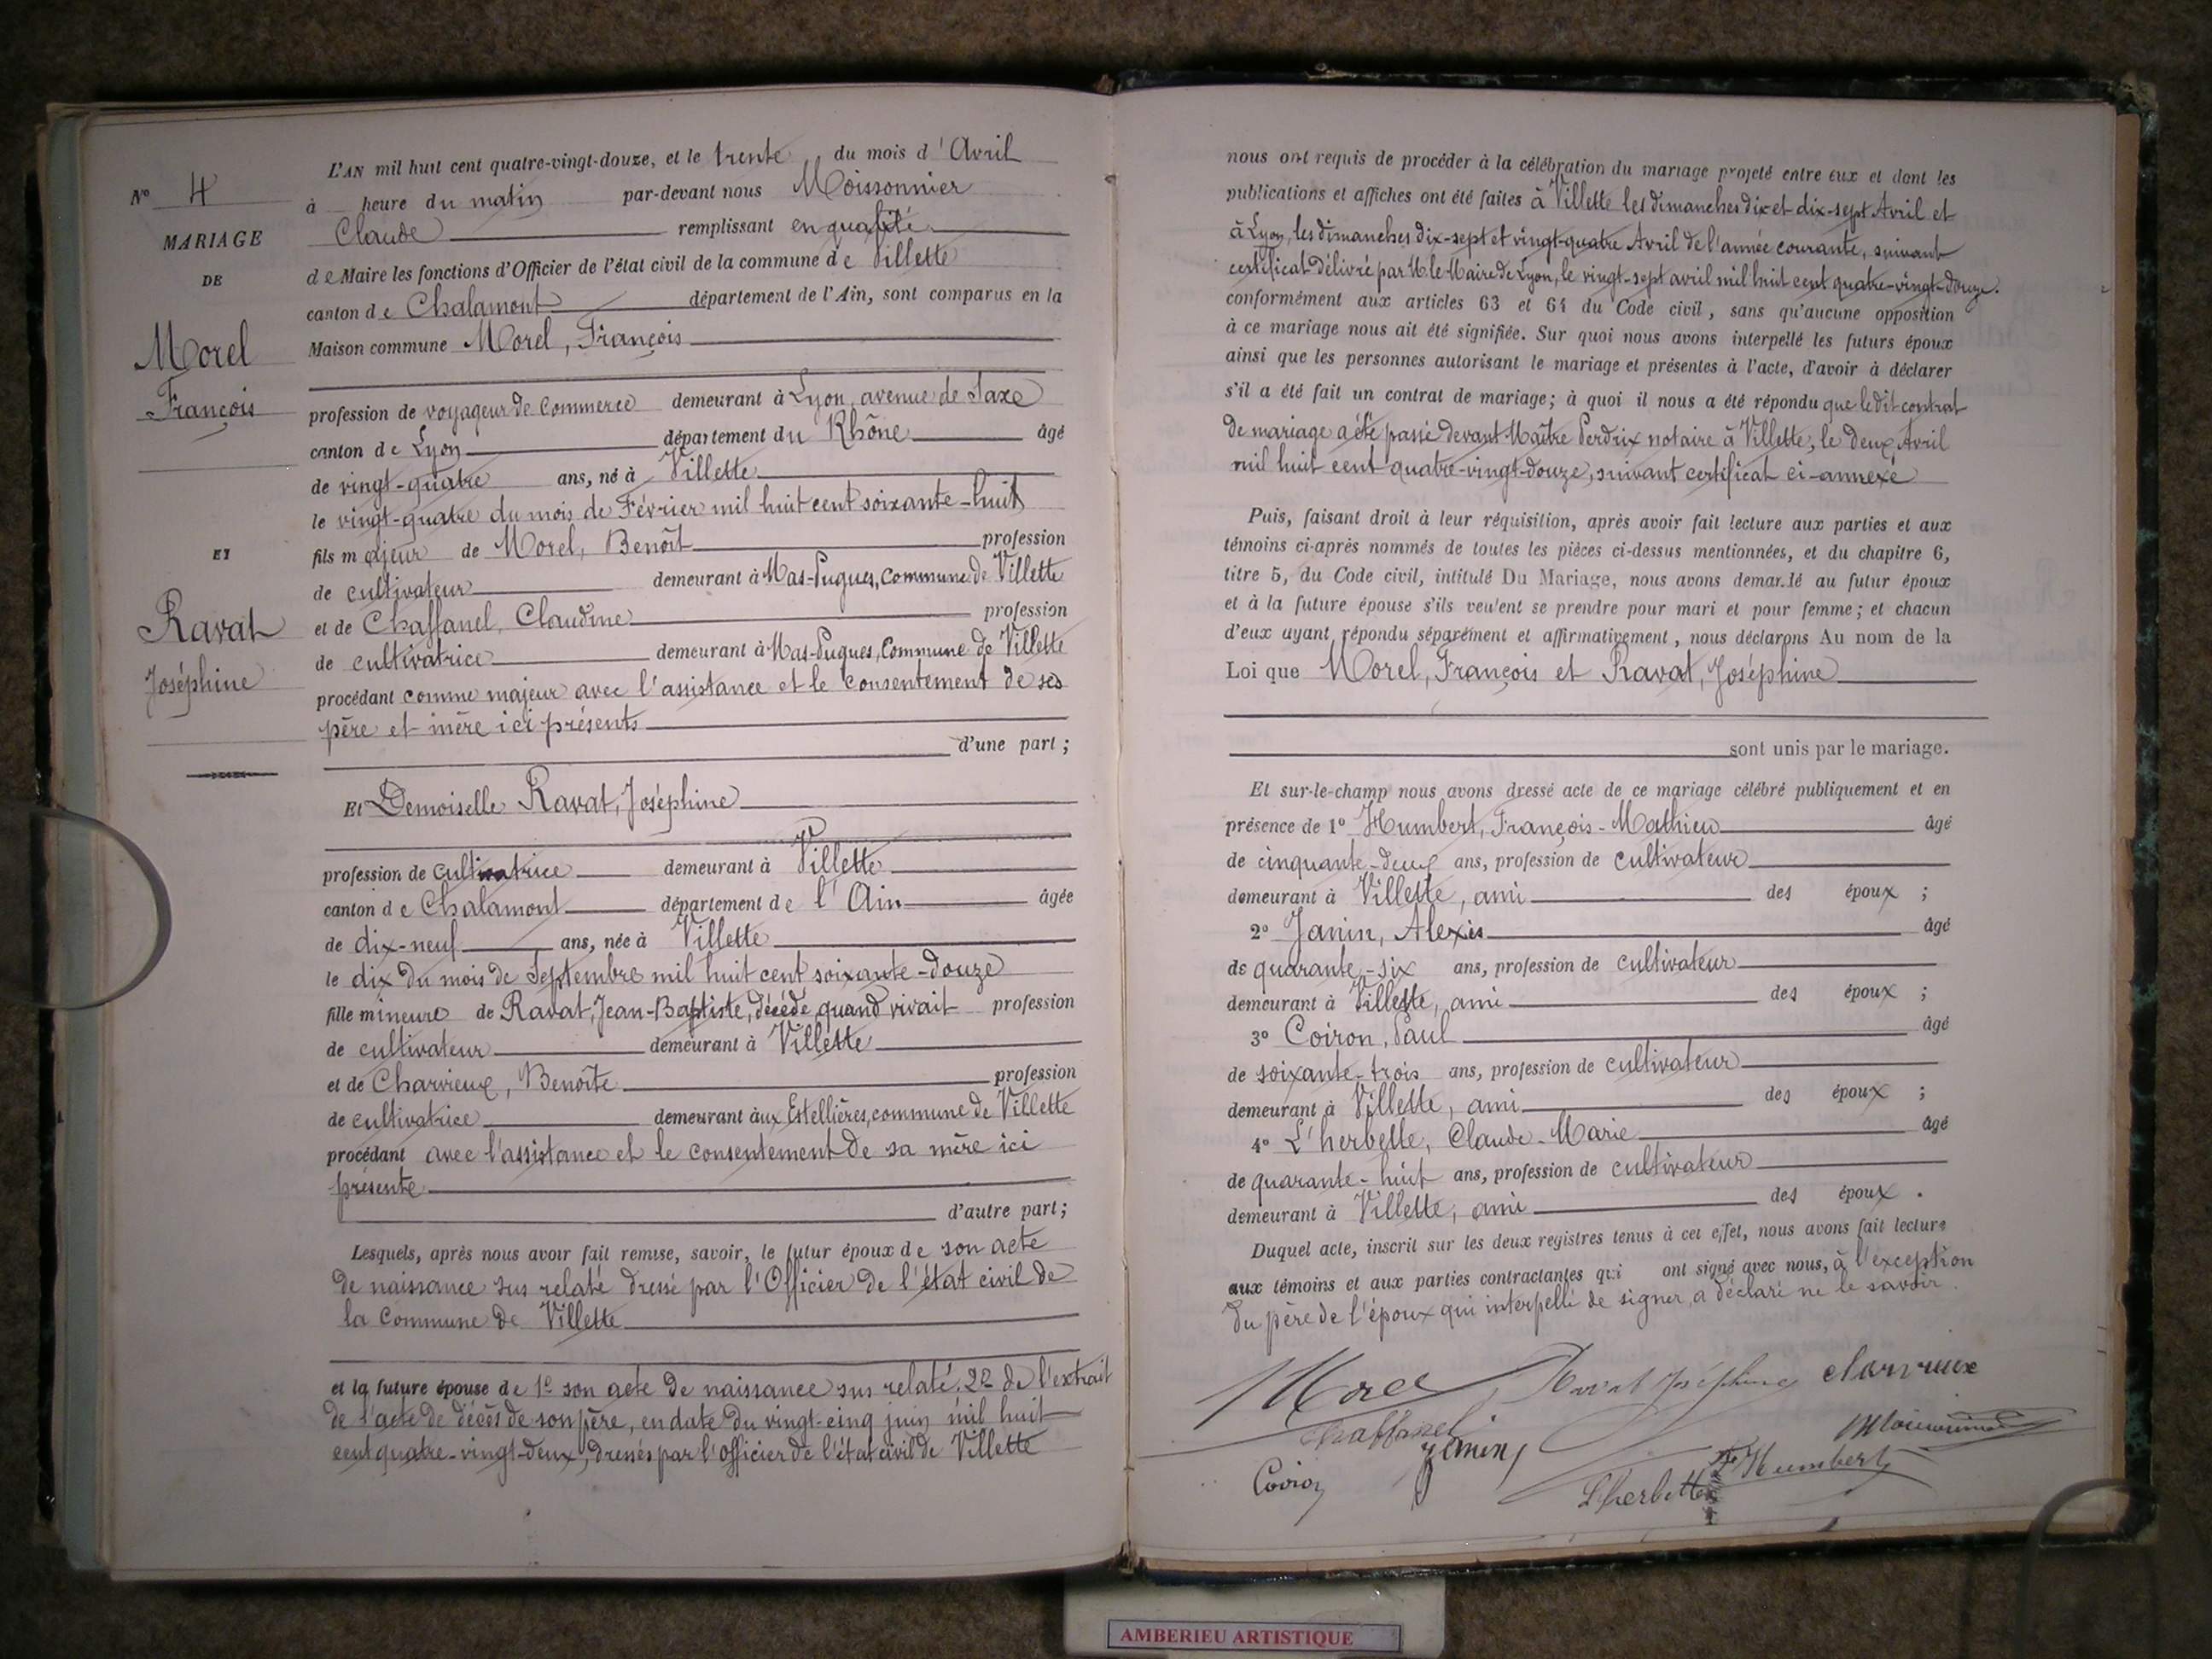 N° 4
MARIAGE
DE
Morel
François
ET
Ravat
Joséphine
L'AN mil huit cent quatre-vingt-douze, et le trente du mois d'Avril
à heure du matin par-devant nous Moissonnier
Claude remplissant en qualité
de Maire les fonctions d'Officier de l'état civil de la commune de Villette
canton de Chalamont département de l'Ain, sont comparus en la
Maison commune Morel, François
profession de voyageur de Commerce demeurant à Lyon, avenue de Saxe
canton de Lyon département du Rhône âgé
de vingt-quatre ans, né à Villette
le vingt-quatre du mois de Février mil huit cent soixante-huit
fils majeur de Morel, Benoît profession
de cultivateur demeurant à Mas-Pugues, Commune de Villette
et de Chaffanel, Claudine profession
de cultivatrice demeurant à Mas-Pugues, Commune de Villette
procédant comme majeur avec l'assistance et le consentement de ses
père et mère ici présents
d'une part ;
Et Demoiselle Ravat, Joséphine
profession de cultivatrice demeurant à Villette
canton de Chalamont département de l'Ain âgée
de dix-neuf ans, née à Villette
le dix du mois de Septembre mil huit cent soixante-douze
fille mineure de Ravat, Jean-Baptiste, décédé, quand vivait profession
de cultivateur demeurant à Villette
et de Charvieux, Benoîte profession
de cultivatrice demeurant àux Estellières, commune de Villette
procédant avec l'assistance et le consentement de sa mère ici
présente
d'autre part ;
Lesquels, après nous avoir fait remise, savoir, le futur époux de son acte
de naissance sus relaté dressé par l'Officier de l'état civil de
la Commune de Villette
et la future épouse de 1° son acte de naissance sus relaté. 2° de l'extrait
de l'acte de décès de son père, en date du vingt-cinq juin mil huit
cent quatre-vingt-deux, dressés par l'officier de l'état civil de Villette
nous ont requis de procéder à la célébration du mariage projeté entre eux et dont les
publications et affiches ont été faites à Villette les dimanches dix et dix-sept Avril et
à Lyon, les dimanches dix-sept et vingt-quatre Avril de l'année courante, suivant
certificat délivré par M. le Maire de Lyon, le vingt-sept avril mil huit cent quatre-vingt-douze.
conformément aux articles 63 et 64 du Code civil, sans qu'aucune opposition
à ce mariage nous ait été signifiée. Sur quoi nous avons interpellé les futurs époux
ainsi que les personnes autorisant le mariage et présentes à l'acte, d'avoir à déclarer
s'il a été fait un contrat de mariage ; à quoi il nous a été répondu que le dit contrat
de mariage a été passé devant Maître Perdrix notaire à Villette, le deux Avril
mil huit cent quatre-vingt-douze, suivant certificat ci-annexé
Puis, faisant droit à leur réquisition, après avoir fait lecture aux parties et aux
témoins ci-après nommés de toutes les pièces ci-dessus mentionnées, et du chapitre 6,
titre 5, du Code civil, intitulé Du Mariage, nous avons demandé au futur époux
et à la future épouse s'ils veulent se prendre pour mari et pour femme ; et chacun
d'eux ayant répondu séparément et affirmativement, nous déclarons Au nom de la
Loi que Morel, François et Ravat, Joséphine
sont unis par le mariage.
Et sur-le-champ nous avons dressé acte de ce mariage célébré publiquement et en
présence de 1° Humbert, François-Mathieu âgé
de cinquante-deux ans, profession de cultivateur
demeurant à Villette, ami des époux ;
2° Janin, Alexis âgé
de quarante-six ans, profession de cultivateur
demeurant à Villette, ami des époux ;
3° Coiron, Paul âgé
de soixante-trois ans, profession de cultivateur
demeurant à Villette, ami des époux ;
4° L'herbette, Claude-Marie âgé
de quarante-huit ans, profession de cultivateur
demeurant à Villette, ami des époux.
Duquel acte, inscrit sur les deux registres tenus à cet effet, nous avons fait lecture
aux témoins et aux parties contractantes qui ont signé avec nous, à l'exception
du père de l'époux qui interpellé de signer, a déclaré ne le savoir.
Morel Ravat Joséphine charvieux
chaffanel Moissonnier
Coiron Lherbette Humbert
AMBERIEU ARTISTIQUE